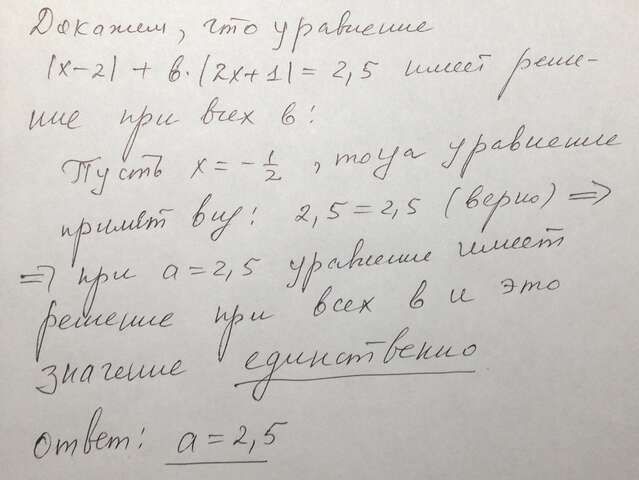 Докажем, что уравнение
|x-2| + в·|2x+1| = 2,5 имеет реше-
ние при всех в:
Пусть x = -1/2, тогда уравнение
примет вид: 2,5 = 2,5 (верно) ⇒
⇒ при a = 2,5 уравнение имеет
решение при всех в и это
значение единственно
ответ: a = 2,5